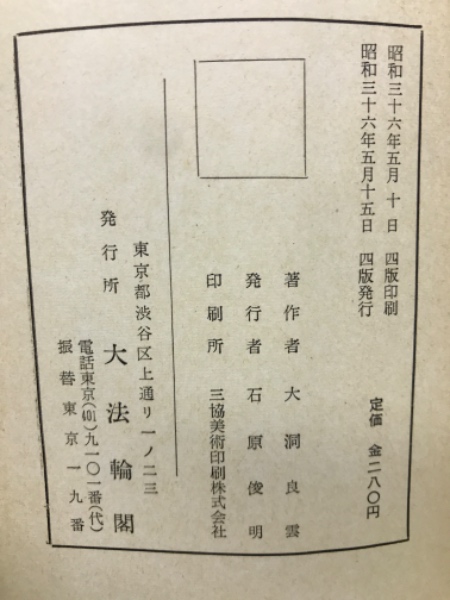 昭和三十六年五月十日 四版印刷
昭和三十六年五月十五日 四版発行
定価 金二八〇円
著作者 大洞良雲
発行者 石原俊明
印刷所 三協美術印刷株式会社
東京都渋谷区上通リ一ノ二三
発行所 大法輪閣
電話東京(401)九一〇一番(代)
振替東京一九番